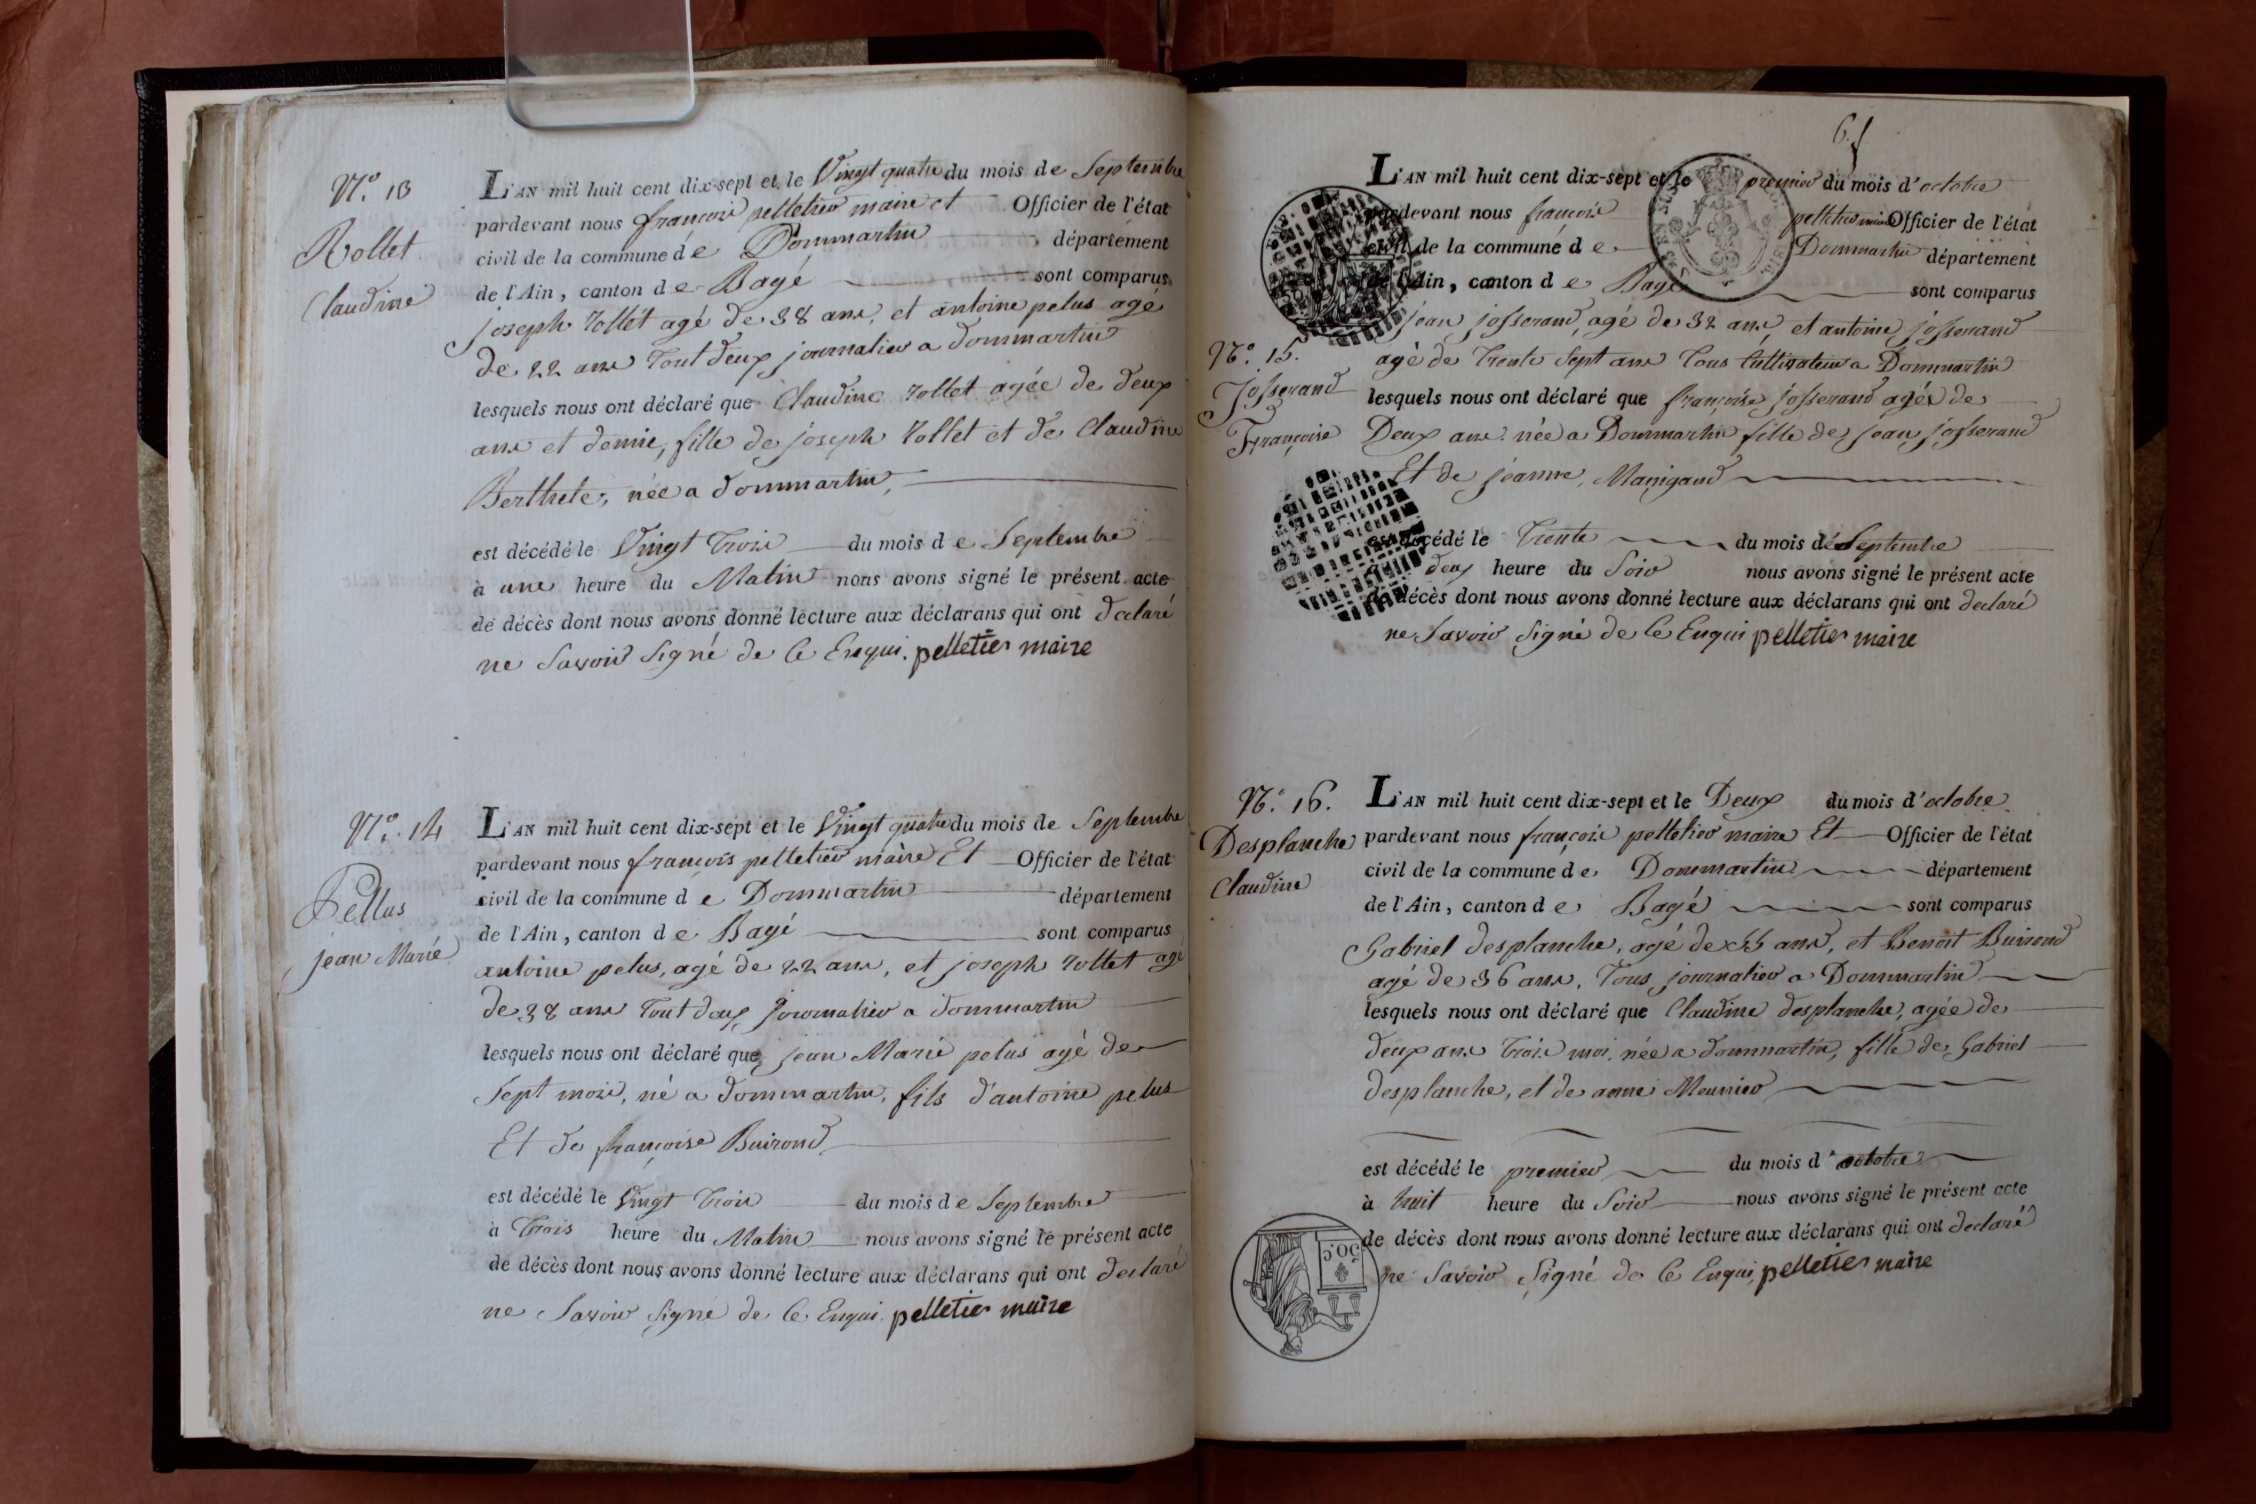 N.° 13
Rollet
Claudine
L'AN mil huit cent dix-sept et le Vingt quatre du mois de Septembre
pardevant nous françois pelletier maire et Officier de l'état
civil de la commune de Dommartin département
de l'Ain, canton de Bagé sont comparus
joseph rollet agé de 38 ans, et antoine pelus age
de 22 ans tout deux journalier a dommartin
lesquels nous ont déclaré que Claudine rollet agée de deux
ans et demie, fille de joseph rollet et de Claudine
Berthele, née a dommartin,
est décédé le Vingt trois du mois de Septembre
à une heure du Matin nous avons signé le présent acte
de décès dont nous avons donné lecture aux déclarans qui ont declaré
ne Savoir Signé de Ce Enqui. pelletier maire
N.° 14
Pellus
jean Marie
L'AN mil huit cent dix-sept et le Vingt quatre du mois de Septembre
pardevant nous françois pelletier maire Et Officier de l'état
civil de la commune de Dommartin département
de l'Ain, canton de Bagé sont comparus
antoine pelus, agé de 22 ans, et joseph rollet agé
de 38 ans tout deux journalier a dommartin
lesquels nous ont déclaré que jean Marie pelus agé de
Sept mois, né a dommartin, fils d'antoine pelus
Et de françoise Buirond
est décédé le Vingt trois du mois de Septembre
à trois heure du Matin nous avons signé le présent acte
de décès dont nous avons donné lecture aux déclarans qui ont declaré
ne Savoir Signé de Ce Enqui. pelletier maire
L'AN mil huit cent dix-sept et le premier du mois d'octobre
pardevant nous françois pelletier maire Officier de l'état
civil de la commune de Dommartin département
de l'Ain, canton de Bagé sont comparus
jean josserand, agé de 32 ans, et antoine josserand
N.° 15.
Josserand
Françoise
agé de trente Sept ans tous Cultivateur a Dommartin
lesquels nous ont déclaré que françoise josserand agée de
Deux ans née a Dommartin fille de jean josserand
Et de jeanne, Manigand
est décédé le trente du mois de Septembre
deux heure du Soir nous avons signé le présent acte
de décès dont nous avons donné lecture aux déclarans qui ont declaré
ne Savoir Signé de Ce Enqui pelletier maire
N.° 16.
Desplanche
Claudine
L'AN mil huit cent dix-sept et le Deux du mois d'octobre
pardevant nous françois pelletier maire Et Officier de l'état
civil de la commune de Dommartin département
de l'Ain, canton de Bagé sont comparus
Gabriel desplanche, agé de ans, et Benoit Buirond
agé de 36 ans, tous journalier a Dommartin
lesquels nous ont déclaré que Claudine desplanche, agée de
deux ans trois moi, née a dommartin, fille de Gabriel
desplanche, et de anne Meunier
est décédé le premier du mois d'octobre
à huit heure du Soir nous avons signé le présent acte
de décès dont nous avons donné lecture aux déclarans qui ont declaré
ne Savoir Signé de Ce Enqui, pelletier maire
50.C